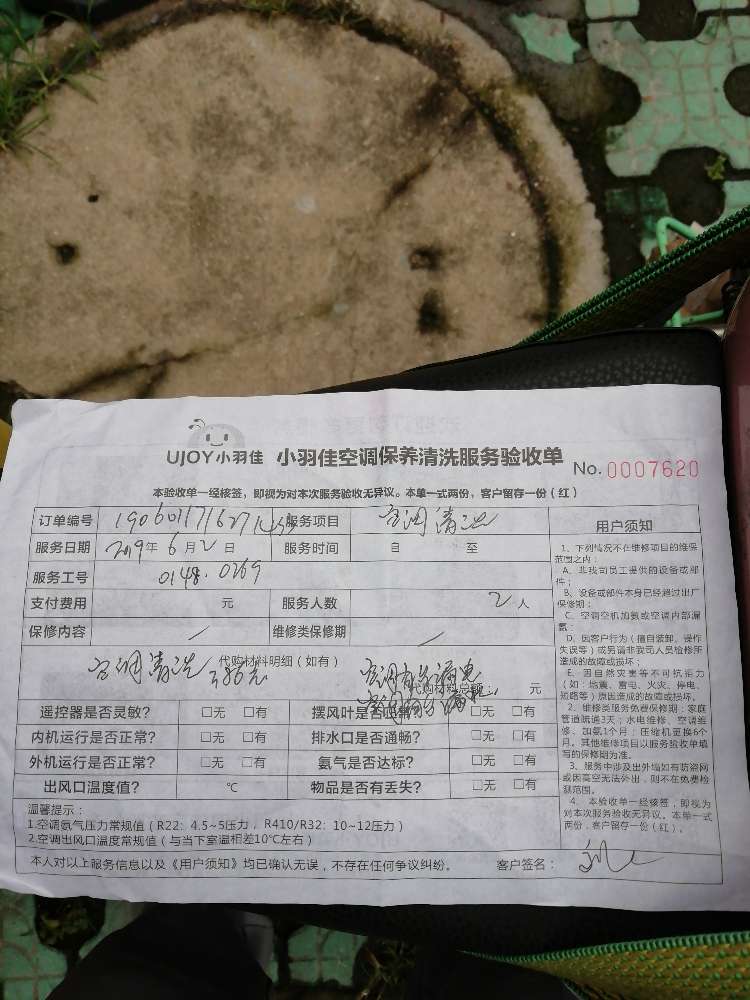 UJOY小羽佳 小羽佳空调保养清洗服务验收单 No. 0007620
本验收单一经核签，即视为对本次服务验收无异议。本单一式两份，客户留存一份（红）
订单编号 服务项目 空调清洗
服务日期 2019年6月2日 服务时间 自 至
服务工号 0148.0269
支付费用 元 服务人数 2人
保修内容 / 维修类保修期 /
空调清洗 代购材料明细（如有）
代购材料总额： 元
遥控器是否灵敏？ □无 □有 摆风叶是否正常？ □无 □有
内机运行是否正常？ □无 □有 排水口是否通畅？ □无 □有
外机运行是否正常？ □无 □有 氨气是否达标？ □无 □有
出风口温度值？ ℃ 物品是否有丢失？ □无 □有
温馨提示：
1.空调氨气压力常规值（R22：4.5~5压力，R410/R32：10~12压力）
2.空调出风口温度常规值（与当下室温相差10℃左右）
本人对以上服务信息以及《用户须知》均已确认无误，不存在任何争议纠纷。 客户签名：
用户须知
1、下列情况不在维修项目的维保
范围之内：
A、非我司员工提供的设备或部
件；
B、设备或部件本身已经超过出厂
保修期；
C、空调空机加氨或空调内部漏
氨；
D、因客户行为（擅自装卸、操作
失误等）或另请非我司人员检修所
造成的故障或损坏；
E、因自然灾害等不可抗拒力
（如：地震、雷电、火灾、停电、
短路等）原因造成的故障或损坏。
2、维修类服务免费保修期：家庭
管道疏通3天；水电维修、空调维
修、加氨1个月；压缩机更换6个
月。其他维修项目以服务验收单填
写的保修期为准。
3、服务中涉及出外墙如有防盗网
或因高空无法外出，则不在免费检
测范围。
4、本验收单一经核签，即视为
对本次服务验收无异议。本单一式
两份，客户留存一份（红）。